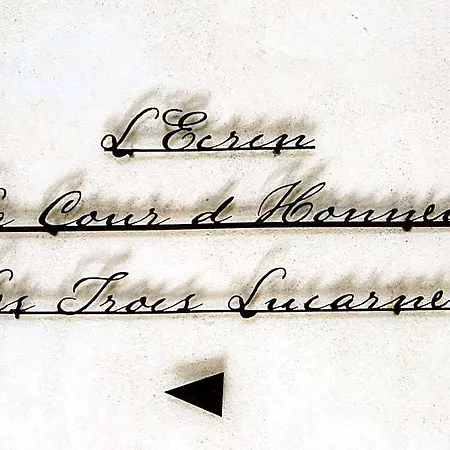 L'Ecrin
Cour d Honneu
s Trois Lucarne